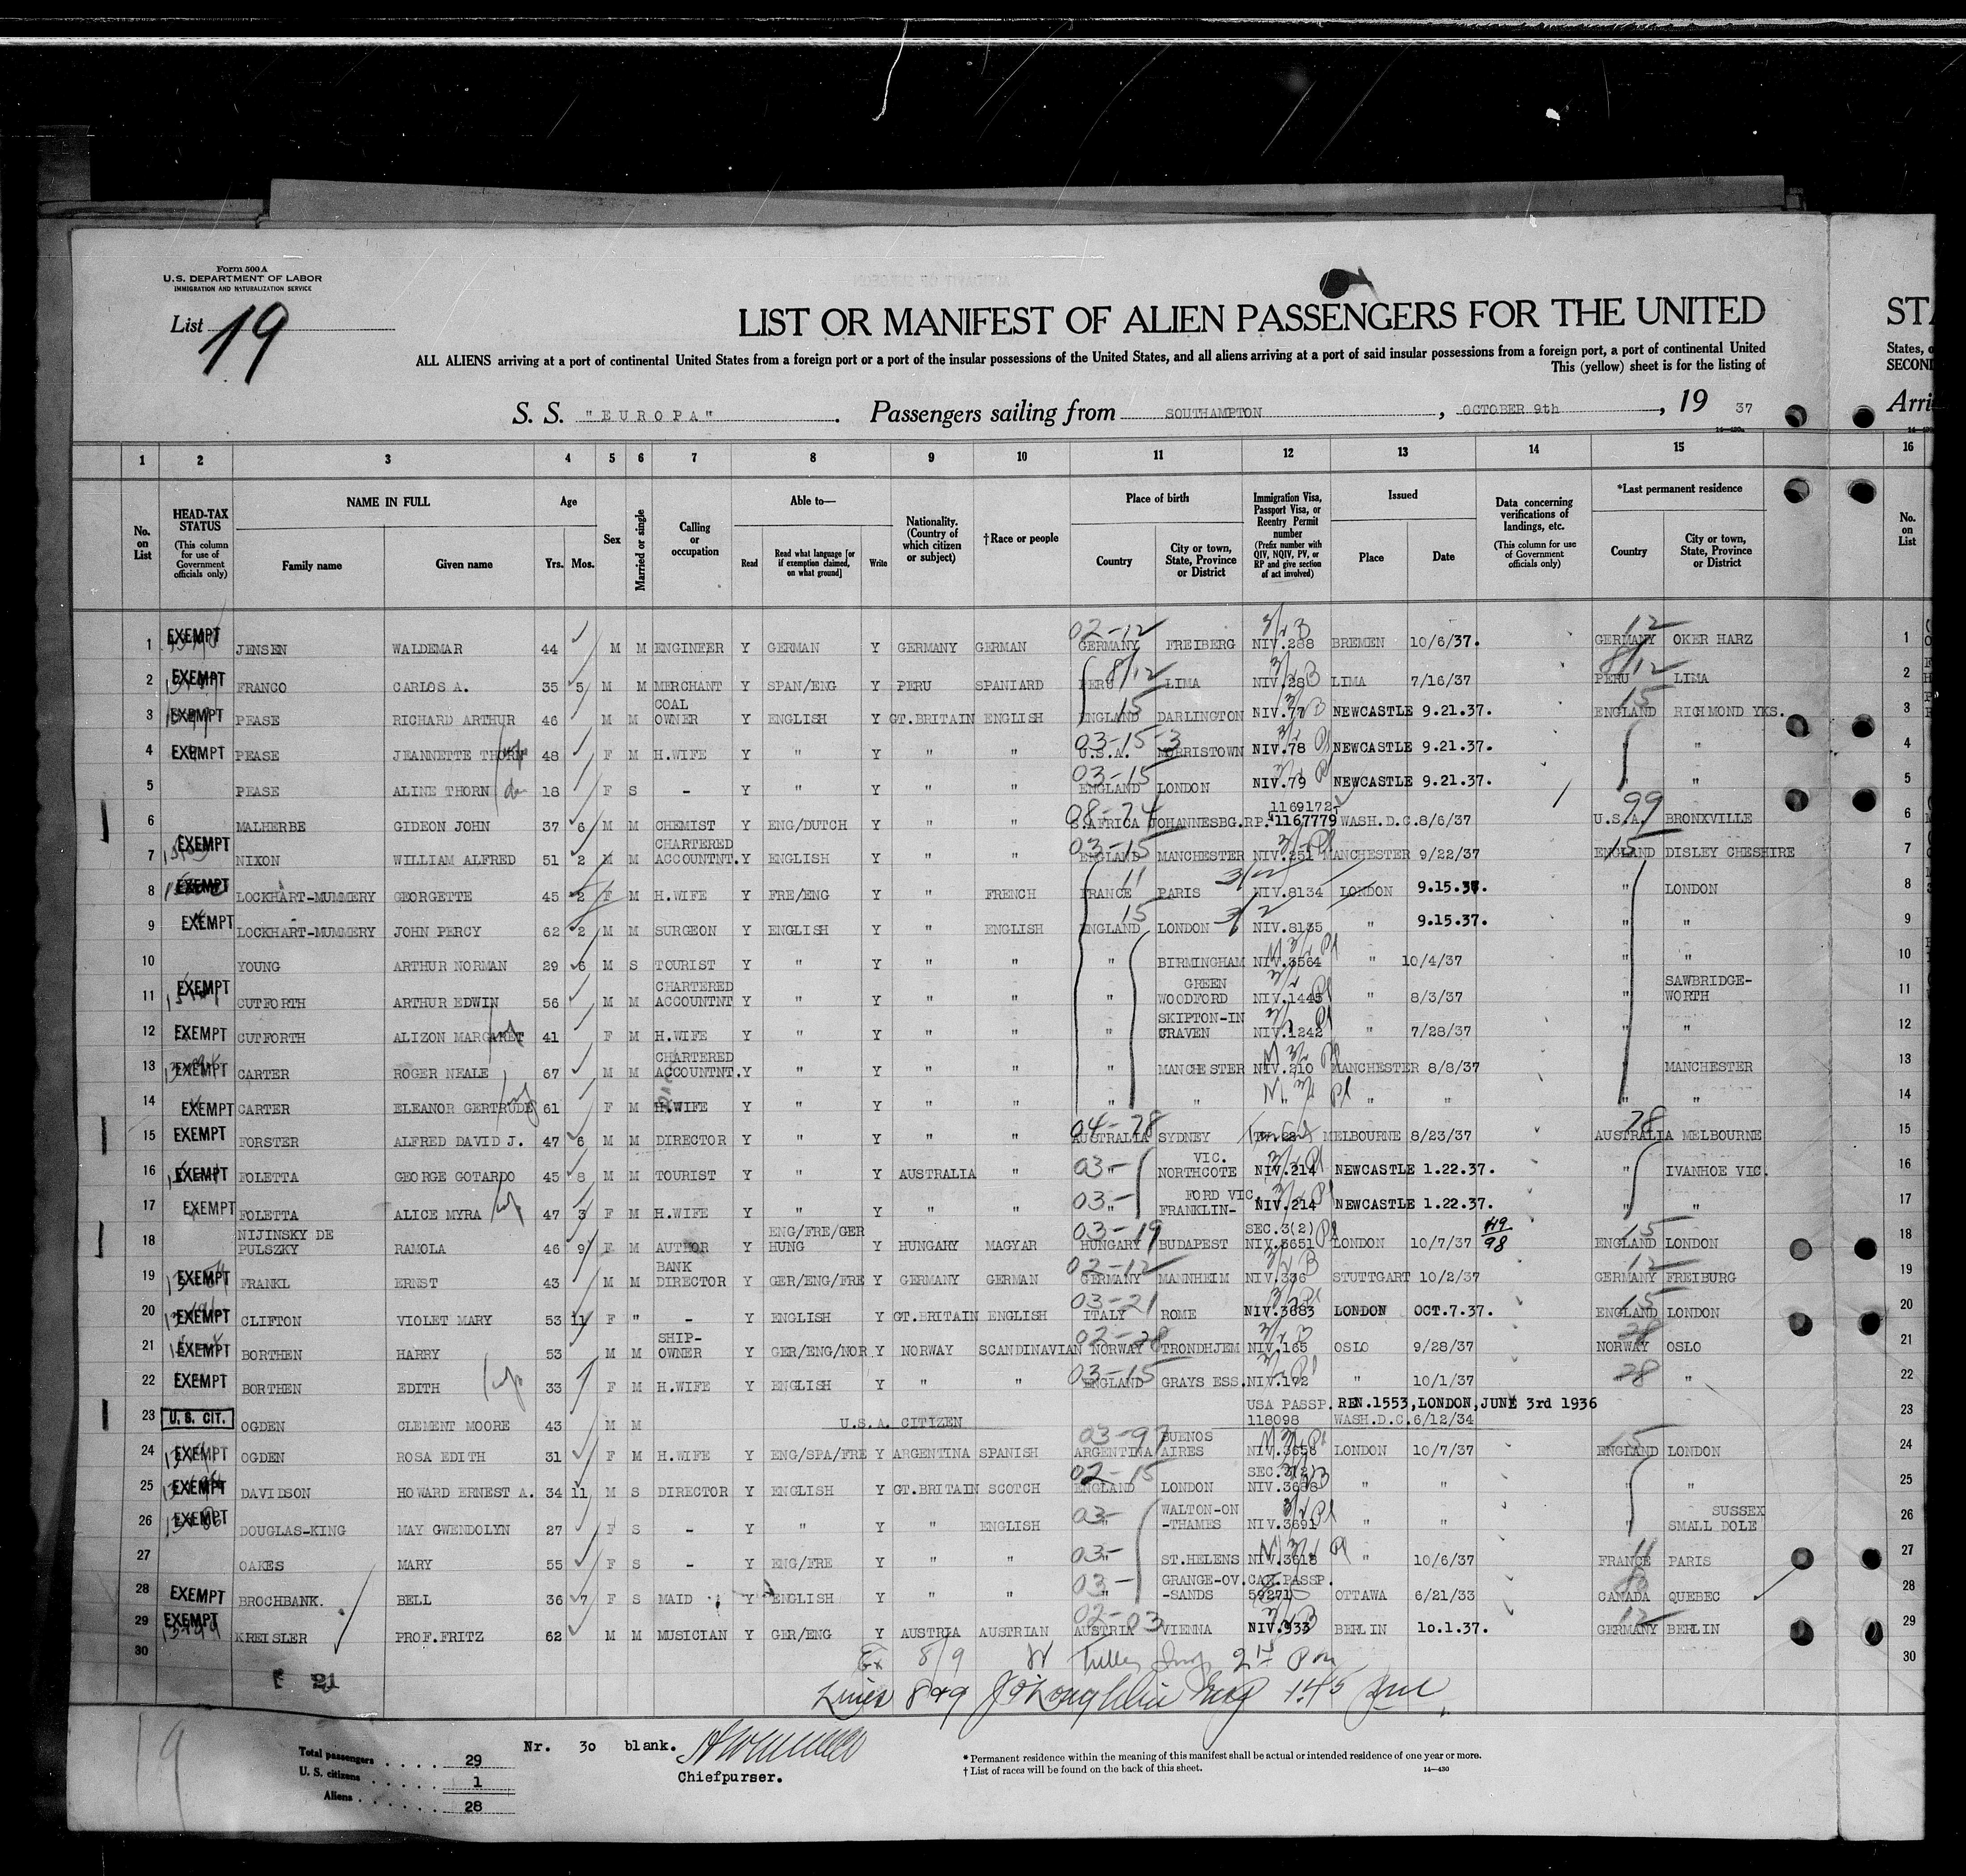 Form 500 A
U.S. DEPARTMENT OF LABOR
IMMIGRATION AND NATURALIZATION SERVICE
List 19
LIST OR MANIFEST OF ALIEN PASSENGERS FOR THE UNITED
STA
ALL ALIENS arriving at a port of continental United States from a foreign port or a port of the insular possessions of the United States, and all aliens arriving at a port of said insular possessions from a foreign port, a port of continental United
States, o
This (yellow) sheet is for the listing of
SECOND
S. S. "EUROPA". Passengers sailing from SOUTHAMPTON, OCTOBER 9th, 19 37
Arri
1 2 3 4 5 6 7 8 9 10 11 12 13 14 15 16
No. on List
HEAD-TAX STATUS (This column for use of Government officials only)
NAME IN FULL Family name Given name
Age Yrs. Mos.
Sex
Married or single
Calling or occupation
Able to— Read Read what language [or if exemption claimed, on what ground] Write
Nationality. (Country of which citizen or subject)
†Race or people
Place of birth Country City or town, State, Province or District
Immigration Visa, Passport Visa, or Reentry Permit number (Prefix number with QIV, NQIV, PV, or RP and give section of act involved)
Issued Place Date
Data concerning verifications of landings, etc. (This column for use of Government officials only)
*Last permanent residence Country City or town, State, Province or District
No. on List
1 EXEMPT JENSEN WALDEMAR 44 M M ENGINEER Y GERMAN Y GERMANY GERMAN 02-12 GERMANY FREIBERG NIV.288 BREMEN 10/6/37. 12 GERMANY OKER HARZ 1
2 EXEMPT FRANCO CARLOS A. 35 5 M M MERCHANT Y SPAN/ENG Y PERU SPANIARD 8/12 PERU LIMA NIV.28 LIMA 7/16/37 8/12 PERU LIMA 2
3 EXEMPT PEASE RICHARD ARTHUR 46 M M COAL OWNER Y ENGLISH Y GT.BRITAIN ENGLISH 15 ENGLAND DARLINGTON NIV.77 NEWCASTLE 9.21.37. 15 ENGLAND RICHMOND YKS. 3
4 EXEMPT PEASE JEANNETTE THORN 48 F M H.WIFE Y " Y " " 03-15-3 U.S.A. MORRISTOWN NIV.78 NEWCASTLE 9.21.37. " " 4
5 PEASE ALINE THORN 18 F S - Y " Y " " 03-15 ENGLAND LONDON NIV.79 NEWCASTLE 9.21.37. " " 5
6 MALHERBE GIDEON JOHN 37 6 M M CHEMIST Y ENG/DUTCH Y " " 08-74 S.AFRICA JOHANNESBG. 1169172 RP.1167779 WASH.D.C. 8/6/37 99 U.S.A. BRONXVILLE 6
7 EXEMPT NIXON WILLIAM ALFRED 51 2 M M CHARTERED ACCOUNTNT. Y ENGLISH Y " " 03-15 ENGLAND MANCHESTER NIV.251 MANCHESTER 9/22/37 15 ENGLAND DISLEY CHESHIRE 7
8 EXEMPT LOCKHART-MUMMERY GEORGETTE 45 2 F M H.WIFE Y FRE/ENG Y " FRENCH 11 FRANCE PARIS 3/2 NIV.8134 LONDON 9.15.37. " LONDON 8
9 EXEMPT LOCKHART-MUMMERY JOHN PERCY 62 2 M M SURGEON Y ENGLISH Y " ENGLISH 15 ENGLAND LONDON 3/2 NIV.8135 " 9.15.37. " " 9
10 YOUNG ARTHUR NORMAN 29 6 M S TOURIST Y " Y " " " BIRMINGHAM NIV.3564 " 10/4/37 " " 10
11 EXEMPT CUTFORTH ARTHUR EDWIN 56 M M CHARTERED ACCOUNTNT Y " Y " " " GREEN WOODFORD NIV.1445 " 8/3/37 " SAWBRIDGE-WORTH 11
12 EXEMPT CUTFORTH ALIZON MARGARET 41 F M H.WIFE Y " Y " " " SKIPTON-IN CRAVEN NIV.1242 " 7/28/37 " " 12
13 EXEMPT CARTER ROGER NEALE 67 M M CHARTERED ACCOUNTNT. Y " Y " " " MANCHESTER NIV.210 MANCHESTER 8/8/37 " MANCHESTER 13
14 EXEMPT CARTER ELEANOR GERTRUDE 61 F M H.WIFE Y " Y " " " " " " " " " 14
15 EXEMPT FORSTER ALFRED DAVID J. 47 6 M M DIRECTOR Y " Y " " 04-78 AUSTRALIA SYDNEY MELBOURNE 8/23/37 78 AUSTRALIA MELBOURNE 15
16 EXEMPT FOLETTA GEORGE GOTARDO 45 8 M M TOURIST Y " Y AUSTRALIA " 03- " VIC. NORTHCOTE NIV.214 NEWCASTLE 1.22.37. " IVANHOE VIC. 16
17 EXEMPT FOLETTA ALICE MYRA 47 3 F M H.WIFE Y " Y " " 03- " FORD VIC. FRANKLIN- NIV.214 NEWCASTLE 1.22.37. " " 17
18 NIJINSKY DE PULSZKY RAMOLA 46 9 F M AUTHOR Y ENG/FRE/GER HUNG Y HUNGARY MAGYAR 03-19 HUNGARY BUDAPEST SEC.3(2) NIV.3651 LONDON 10/7/37 15 ENGLAND LONDON 18
19 EXEMPT FRANKL ERNST 43 M M BANK DIRECTOR Y GER/ENG/FRE Y GERMANY GERMAN 02-12 GERMANY MANNHEIM NIV.336 STUTTGART 10/2/37 12 GERMANY FREIBURG 19
20 EXEMPT CLIFTON VIOLET MARY 53 11 F " - Y ENGLISH Y GT.BRITAIN ENGLISH 03-21 ITALY ROME NIV.3683 LONDON OCT.7.37. 15 ENGLAND LONDON 20
21 EXEMPT BORTHEN HARRY 53 M M SHIP-OWNER Y GER/ENG/NOR Y NORWAY SCANDINAVIAN 02-28 NORWAY TRONDHJEM NIV.165 OSLO 9/28/37 28 NORWAY OSLO 21
22 EXEMPT BORTHEN EDITH 33 F M H.WIFE Y ENGLISH Y " " 03-15 ENGLAND GRAYS ESS. NIV.172 " 10/1/37 28 " 22
23 U.S. CIT. OGDEN CLEMENT MOORE 43 M M U.S.A. CITIZEN USA PASSP. 118098 REN.1553, LONDON, JUNE 3rd 1936 WASH.D.C. 6/12/34 23
24 EXEMPT OGDEN ROSA EDITH 31 F M H.WIFE Y ENG/SPA/FRE Y ARGENTINA SPANISH 03-97 ARGENTINA BUENOS AIRES NIV.3658 LONDON 10/7/37 15 ENGLAND LONDON 24
25 EXEMPT DAVIDSON HOWARD ERNEST A. 34 11 M S DIRECTOR Y ENGLISH Y GT.BRITAIN SCOTCH 02-15 ENGLAND LONDON SEC.3(2) NIV.3688 " " " " 25
26 EXEMPT DOUGLAS-KING MAY GWENDOLYN 27 F S - Y " Y " ENGLISH 03- " WALTON-ON-THAMES NIV.3691 " " " SUSSEX SMALL DOLE 26
27 OAKES MARY 55 F S - Y ENG/FRE Y " " 03- " ST.HELENS NIV.3618 " 10/6/37 11 FRANCE PARIS 27
28 EXEMPT BROCHBANK. BELL 36 7 F S MAID Y ENGLISH Y " " 03- " GRANGE-OV.-SANDS CAN.PASSP. 59271 OTTAWA 6/21/33 CANADA QUEBEC 28
29 EXEMPT KREISLER PROF.FRITZ 62 M M MUSICIAN Y GER/ENG Y AUSTRIA AUSTRIAN 02-03 AUSTRIA VIENNA NIV.933 BERLIN 10.1.37. 12 GERMANY BERLIN 29
30 30
21
Lines 8 & 9 J O'Loughlin Insp 1.45 pm
19
Total passengers 29
U. S. citizens 1
Aliens 28
Nr. 30 blank.
Chiefpurser.
* Permanent residence within the meaning of this manifest shall be actual or intended residence of one year or more.
† List of races will be found on the back of this sheet.
14—430